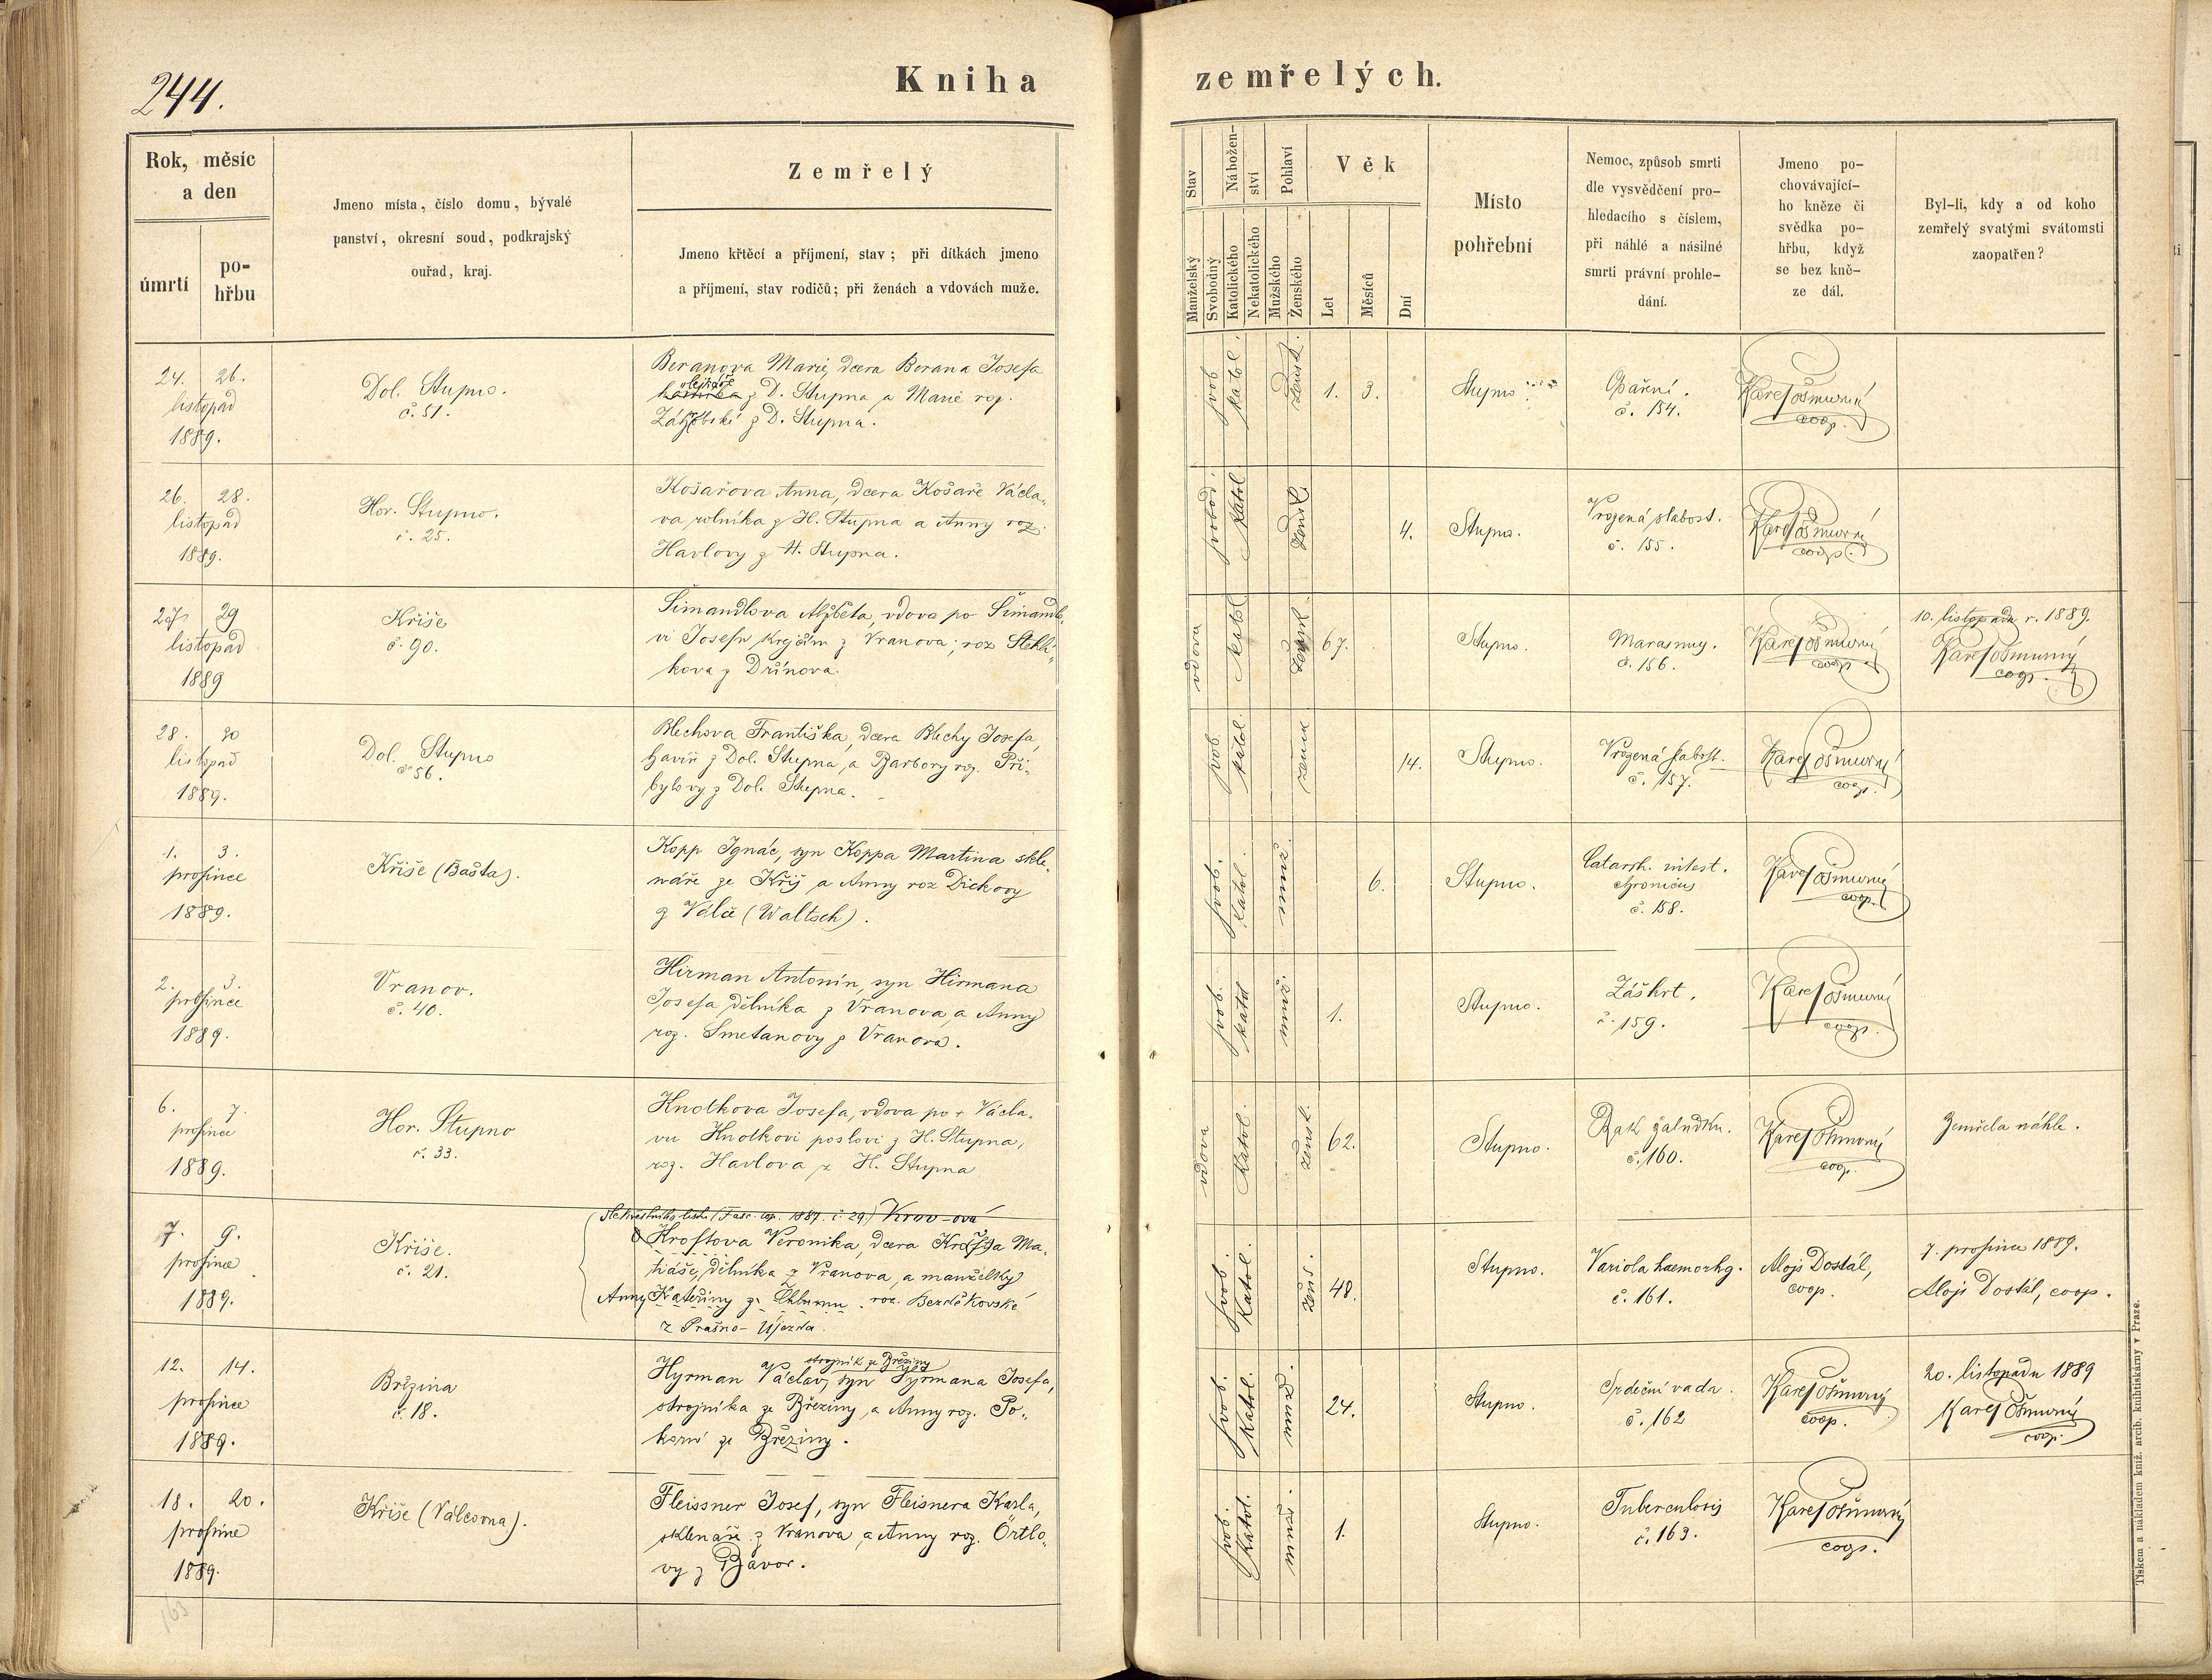 244.
Kniha zemřelých.
Rok, měsíc
a den
úmrtí
po-
hřbu
Jmeno místa, číslo domu, bývalé
panství, okresní soud, podkrajský
ouřad, kraj.
Zemřelý
Jmeno křtěcí a příjmení, stav; při dítkách jmeno
a příjmení, stav rodičů; při ženách a vdovách muže.
Stav
Manželský
Svobodný
Nábožen-
ství
Katolického
Nekatolického
Pohlaví
Mužského
Ženského
Věk
Let
Měsíců
Dní
Místo
pohřební
Nemoc, způsob smrti
dle vysvědčení pro-
hledacího s číslem,
při náhlé a násilné
smrti právní prohle-
dání.
Jmeno po-
chovávající-
ho kněze či
svědka po-
hřbu, když
se bez kně-
ze dál.
Byl-li, kdy a od koho
zemřelý svatými svátomsti
zaopatřen?
24. 26.
listopad
1889.
Dol. Stupno.
č. 51.
Beranova Marie, dcera Berana Josefa
z D. Stupna a Marie roz.
z D. Stupna.
svob.
katol.
žensk.
1. 3.
Stupno.
Opaření.
č. 154.
Karel Ošmurný
coop.
26. 28.
listopad
1889.
Hor. Stupno.
č. 25.
Košařova Anna, dcera Košaře Václa„
va rolníka z H. Stupna a Anny roz.
Havlovy z H. Stupna.
svobod.
Katol
žensk.
4.
Stupno.
Vrozená slabost.
č. 155.
Karel Ošmurný
coop.
27 29
listopad
1889
Kříše
č. 90.
Šimandlova Alžběta, vdova po Šimandlo„
vi Josefu, krejčím z Vranova; roz Stehlí„
kova z Držínova.
vdova
katol
žensk.
67.
Stupno.
Marasmus.
č. 156.
Karel Ošmurný
coop.
10. listopadu r. 1889.
Karel Ošmurný
coop.
28. 30
listopad
1889.
Dol. Stupno
č. 56.
Blechova Františka, dcera Blechy Josefa,
havíř z Dol. Stupna, a Barbory roz. Při„
bylovy z Dol. Stupna.
svob.
katol.
14.
Stupno.
Vrozená slabost.
č. 157.
Karel Ošmurný
coop.
1. 3.
prosince
1889.
Kříše (Bašta).
Kopp Ignác, syn Koppa Martina skle„
náře ze Kříš a Anny roz Dickovy
z Valče (Waltsch).
svob.
katol.
muž.
6.
Stupno.
Catarrh. intest.
chronicus
č. 158.
Karel Ošmurný
coop.
2. 3.
prosince
1889.
Vranov.
č. 40.
Hirman Antonín, syn Hirmana
Josefa dělníka z Vranova, a Anny
roz. Smetanovy z Vranova.
svob.
katol
muž.
1.
Stupno.
Záškrt.
č. 159.
Karel Ošmurný
coop.
6. 7.
prosince
1889.
Hor. Stupno
č. 33.
Knotkova Josefa, vdova po + Václa„
vu Knotkovi poslovi z H. Stupna,
roz. Havlova z H. Stupna
vdova
Katol.
žensk.
62.
Stupno.
Rak žaludku.
č. 160.
Karel Ošmurný
coop.
Zemřela náhle.
7. 9.
prosince
1889.
Kříše.
č. 21.
Veronika, dcera Ma„
tiáše, dělníka z Vranova, a manželky
Anny Kateřiny z Chlumu roz. Bezděkovské
z Prašno-Újezda.
svob.
Katol.
žens.
48.
Stupno.
Variola haemorhg.
č. 161.
Alojs Dostál,
coop.
7. prosince 1889.
Alojs Dostál, coop.
12. 14.
prosince
1889.
Březina
č. 18.
strojník ze Březiny
Hyrman Václav, syn Hyrmana Josefa,
strojníka ze Březiny, a Anny roz. Po„
korné ze Březiny.
svob.
Katol.
24.
Stupno.
Srdeční vada.
č. 162
Karel Ošmurný
coop.
20. listopadu 1889
Karel Ošmurný
coop.
18. 20.
prosince
1889.
Kříše (Válcovna).
Fleissner Josef, syn Fleisnera Karla,
sklenáře z Vranova, a Anny roz. Örtlo„
vy z Bavor.
svob.
Katol.
1.
Stupno.
Tuberculosis
č. 163.
Karel Ošmurný
coop.
163
Tiskem a nákladem kníž. arcib. knihtiskárny v Praze.